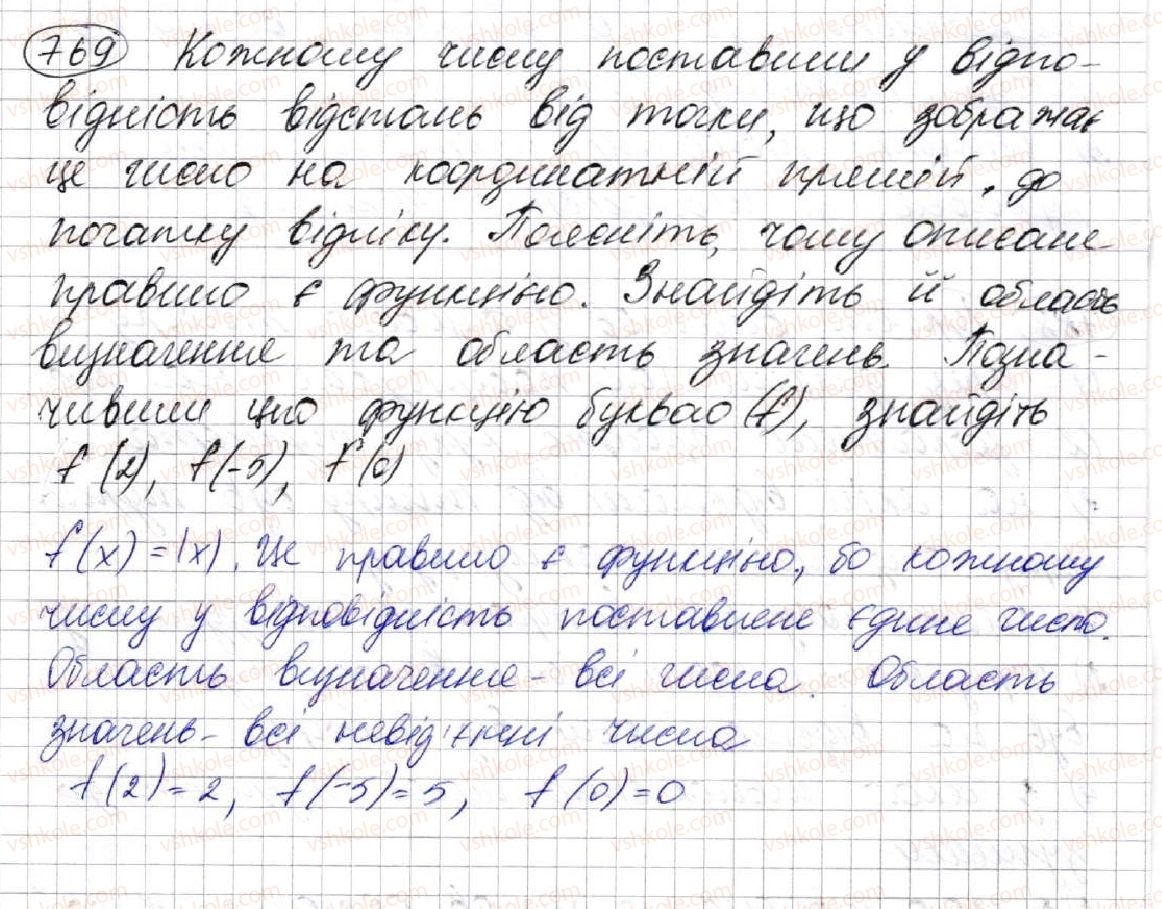 769 Кожному числу поставили у відпо-
відність відстань від точки, що зображає
це число на координатній прямій, до
початку відліку. Поясніть, чому описане
правило є функцією. Знайдіть її область
визначення та область значень. Позна-
чивши цю функцію буквою (f), знайдіть
f(2), f(-5), f(0)
f(x) = |x|. Це правило є функцією, бо кожному
числу у відповідність поставлене єдине число.
Область визначення - всі числа. Область
значень - всі невід'ємні числа
f(2) = 2, f(-5) = 5, f(0) = 0
vshkole.com